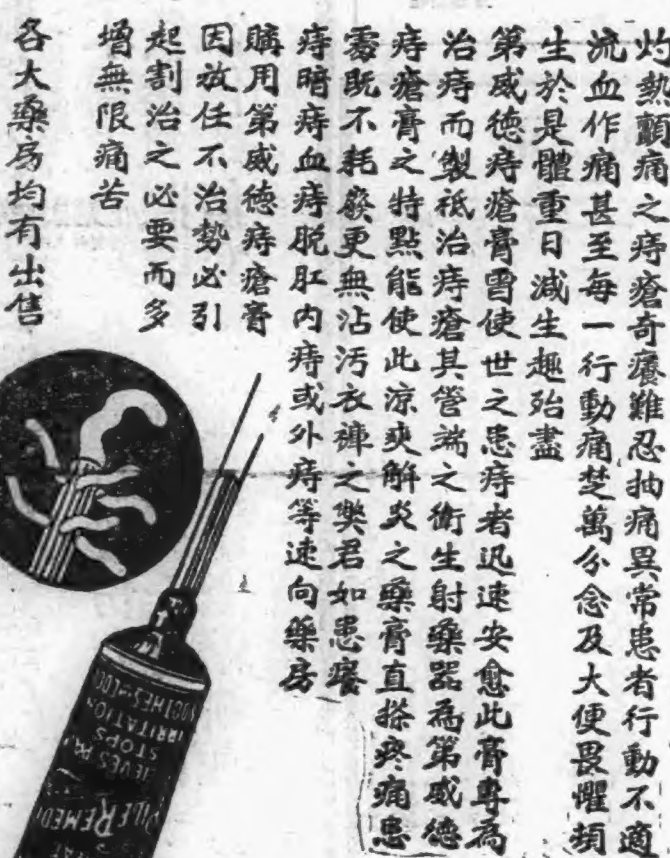 灼熱顫痛之痔瘡奇癢難忍抽痛異常患者行動不適
流血作痛甚至每一行動痛楚萬分念及大便畏懼頻
生於是體重日減生趣殆盡
第威德痔瘡膏曾使世之患痔者迅速安愈此膏專為
治痔而製祇治痔瘡其管端之衛生射藥器為第威德
痔瘡膏之特點能使此涼爽解炎之藥膏直搽疼痛患
處既不耗廢更無沾污衣褲之弊君如患癢
痔暗痔血痔脫肛內痔或外痔等速向藥房
購用第威德痔瘡膏
因放任不治勢必引
起割治之必要而多
增無限痛苦
各大藥房均有出售
PILE REMED
IEVES PA
STOPS
IRRITATION
SOOTHES